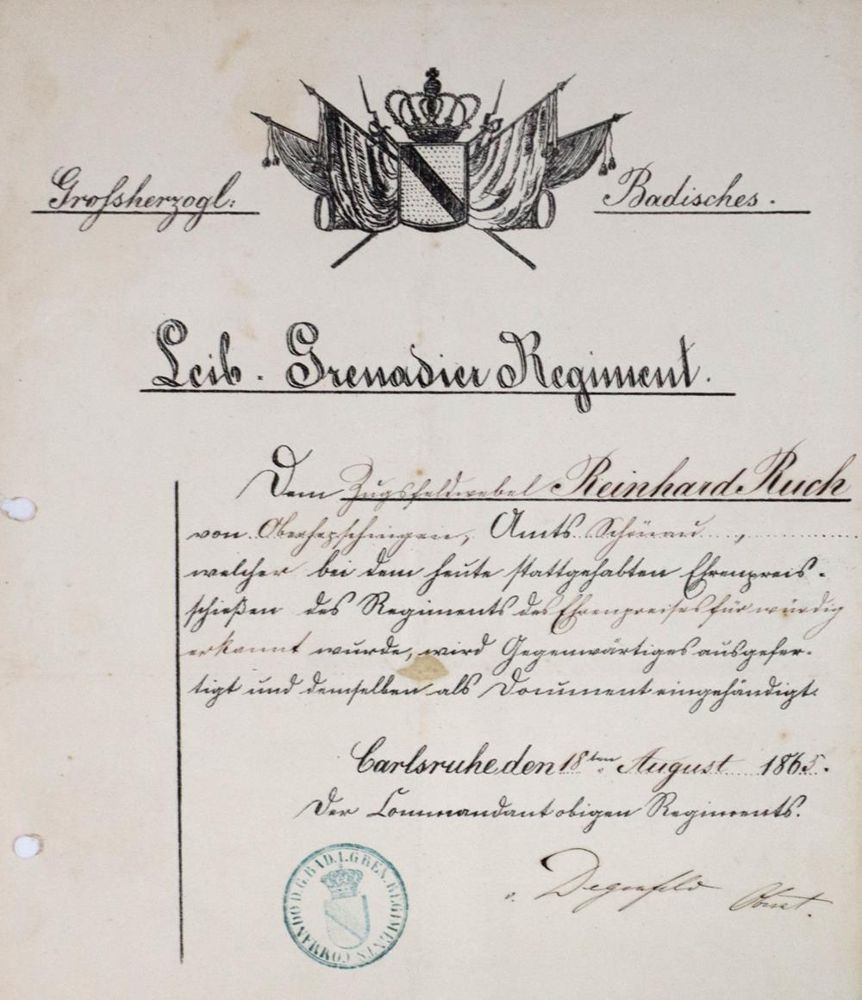 Großherzogl: Badisches.
Leib-Grenadier Regiment.
Dem Zugsfeldwebel Reinhard Ruch
von Amts Schönau,
welcher bei dem heute stattgehabten Ehrenpreis-
schießen des Regiments des Ehrenpreises für würdig
erkannt wurde, wird Gegenwärtiges ausgefer-
tigt und demselben als Document eingehändigt.
Carlsruhe den 18ten August 1865.
Der Commandant obigen Regiments.
v. Degenfeld Oberst.
COMMANDO D. G. BAD. L. GREN. REGIMENTS